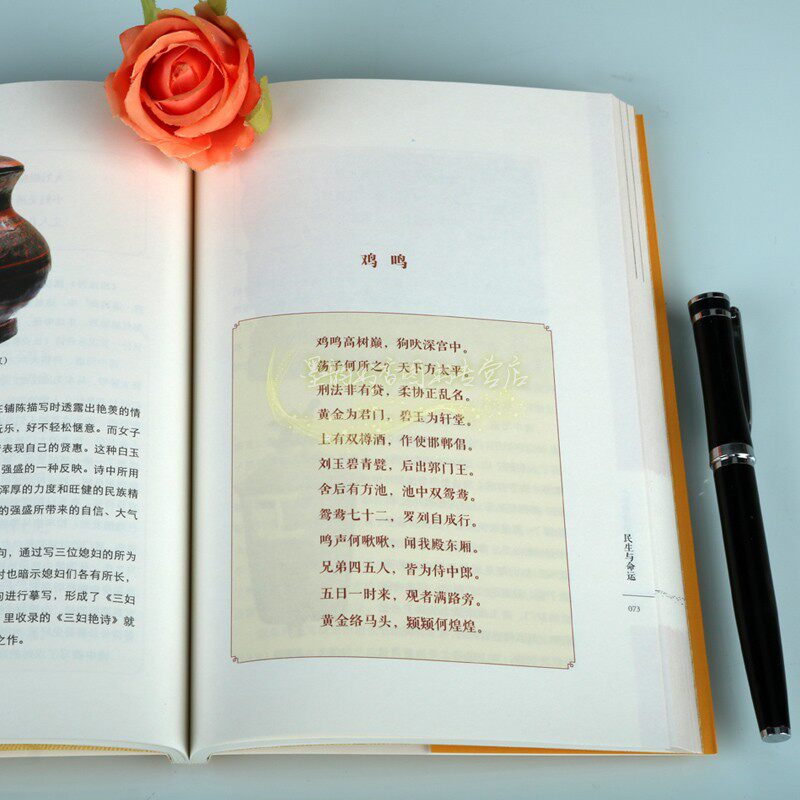 在铺陈描写时透露出艳羡的情
玩乐，好不轻松惬意。而女子
表现自己的贤惠。这种白玉
强盛的一种反映。诗中所用
浑厚的力度和旺健的民族精
的强盛所带来的自信、大气
句，通过写三位媳妇的所为
时也暗示媳妇们各有所长，
句进行摹写，形成了《三妇
里收录的《三妇艳诗》就
之作。
鸡鸣
鸡鸣高树巅，狗吠深宫中。
荡子何所之？天下方太平。
刑法非有贷，柔协正乱名。
黄金为君门，碧玉为轩堂。
上有双樽酒，作使邯郸倡。
刘玉碧青甓，后出郭门王。
舍后有方池，池中双鸳鸯。
鸳鸯七十二，罗列自成行。
鸣声何啾啾，闻我殿东厢。
兄弟四五人，皆为侍中郎。
五日一时来，观者满路旁。
黄金络马头，颎颎何煌煌。
民生与命运
073